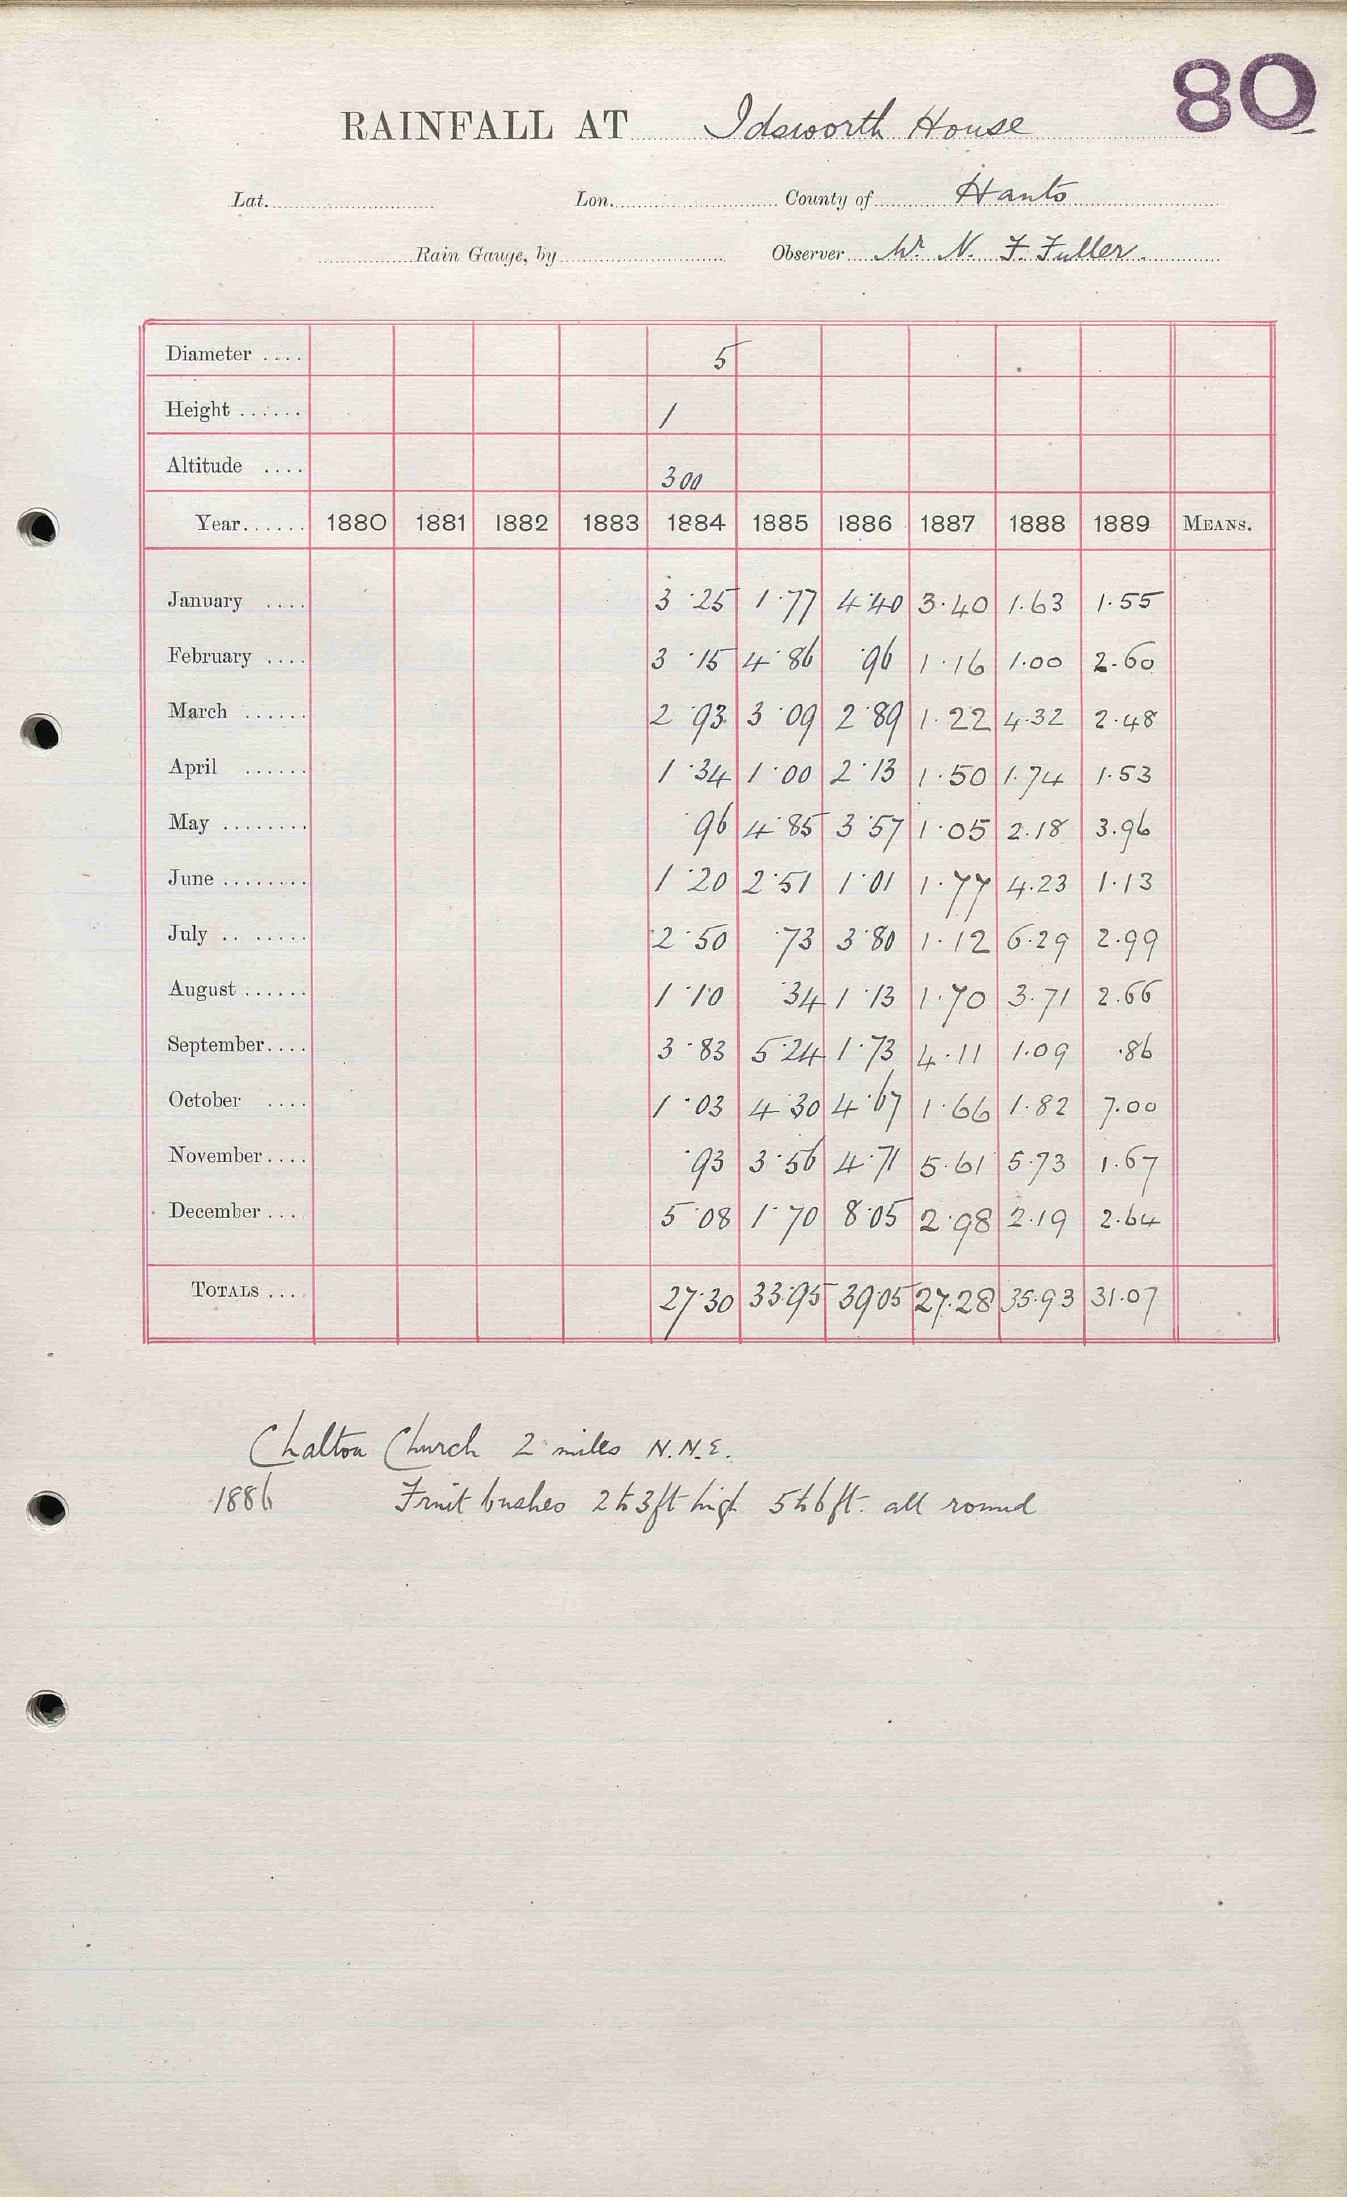 80
RAINFALL AT Idsworth House
Lat. Lon. County of Hants
Rain Gauge, by Observer Mr. N. F. Fuller.
Diameter .... 5
Height ...... 1
Altitude .... 300
Year...... 1880 1881 1882 1883 1884 1885 1886 1887 1888 1889 MEANS.
January .... 3.25 1.77 4.40 3.40 1.63 1.55
February .... 3.15 4.86 .96 1.16 1.00 2.60
March ...... 2.93 3.09 2.89 1.22 4.32 2.48
April ...... 1.34 1.00 2.13 1.50 1.74 1.53
May ........ .96 4.85 3.57 1.05 2.18 3.96
June ........ 1.20 2.51 1.01 1.77 4.23 1.13
July .. ..... 2.50 .73 3.80 1.12 6.29 2.99
August ...... 1.10 .34 1.13 1.70 3.71 2.66
September.... 3.83 5.24 1.73 4.11 1.09 .86
October .... 1.03 4.30 4.67 1.66 1.82 7.00
November.... .93 3.56 4.71 5.61 5.73 1.67
December ... 5.08 1.70 8.05 2.98 2.19 2.64
TOTALS .... 27.30 33.95 39.05 27.28 35.93 31.07
Chalton Church 2 miles N.N.E.
1886 Fruit bushes 2 to 3 ft high 5 to 6 ft. all round